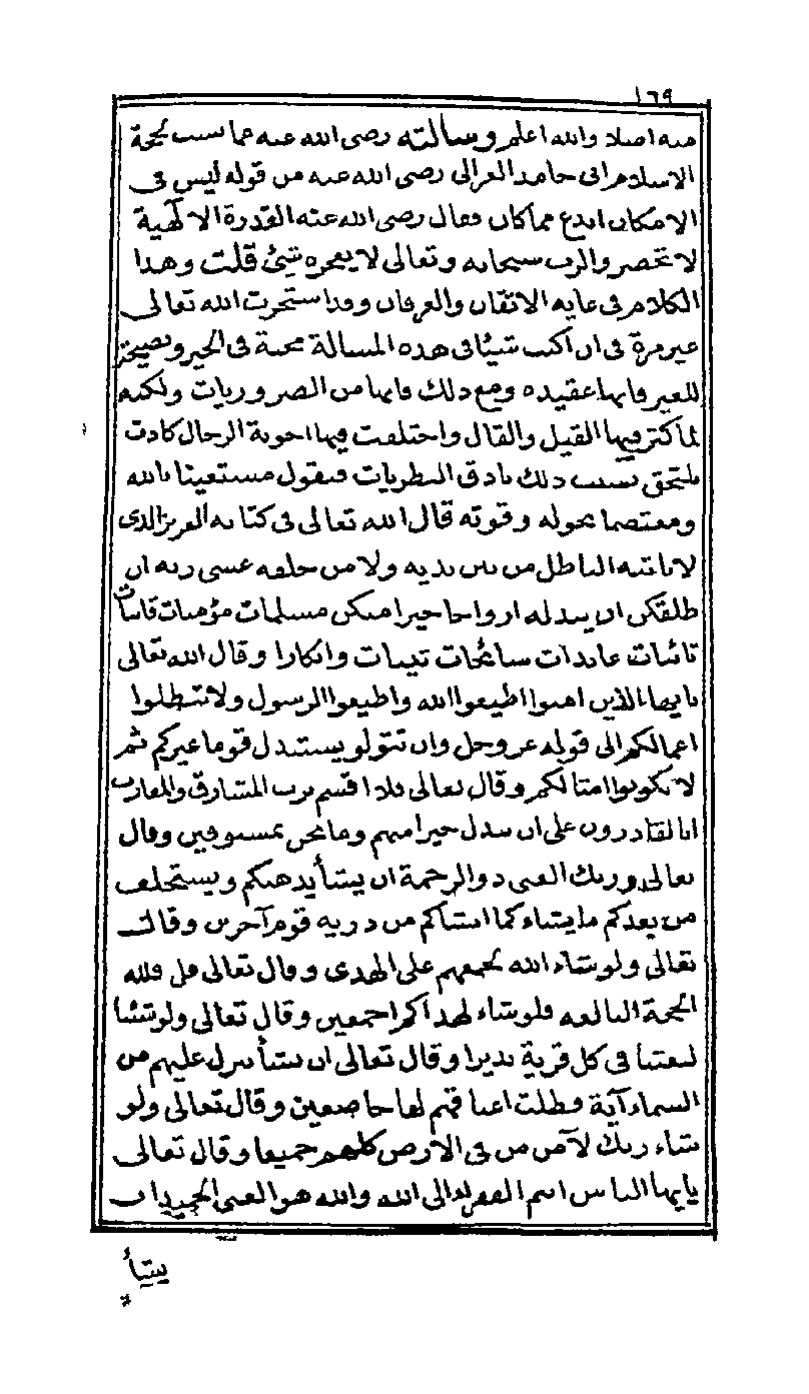 ١٦٩
منه اصلا والله اعلم وسالته رضي الله عنه عما نسب لحجة
الاسلام ابى حامد الغزالى رضى الله عنه من قوله ليس فى
الامكان ابدع مما كان فقال رضى الله عنه القدرة الالهية
لا تنحصر والرب سبحانه وتعالى لا يعجزه شئ قلت وهذا
الكلام فى غاية الاتقان والعرفان وقد استخرت الله تعالى
غير مرة فى ان اكتب شيئا فى هذه المسالة محبة فى الخير ونصيحة
للغير فانها عقيده ومع ذلك فانها من الضروريات ولكنه
لما كثر فيها القيل والقال واختلفت فيها اجوبة الرجال كادت
تلتحق بسبب ذلك بادق النظريات فنقول مستعينا بالله
ومعتصما بحوله وقوته قال الله تعالى فى كتابه العزيز الذى
لا ياتيه الباطل من بين يديه ولا من خلفه عسى ربه ان
طلقكن ان يبدله ازواجا خيرا منكن مسلمات مؤمنات قانتات
تائبات عابدات سائحات ثيبات وابكارا وقال الله تعالى
يايها الذين امنوا اطيعوا الله واطيعوا الرسول ولا تبطلوا
اعمالكم الى قوله عز وجل وان تتولو يستبدل قوما غيركم ثم
لا يكونوا امثالكم وقال تعالى فلا اقسم برب المشارق والمغارب
انا لقادرون على ان نبدل خيرا منهم وما نحن بمسبوقين وقال
تعالى وربك الغنى ذو الرحمة ان يشأ يذهبكم ويستخلف
من بعدكم ما يشاء كما انشاكم من ذرية قوم آخرين وقال
تعالى ولو شاء الله لجمعهم على الهدى وقال تعالى قل فلله
الحجة البالغه فلو شاء لهداكم اجمعين وقال تعالى ولو شئنا
لبعثنا فى كل قرية نذيرا وقال تعالى ان نشأ ننزل عليهم من
السماء آية فظلت اعناقهم لها خاضعين وقال تعالى ولو
شاء ربك لآمن من فى الارض كلهم جميعا وقال تعالى
يايها الناس انتم الفقراء الى الله والله هو الغنى الحميد ان
يشأ